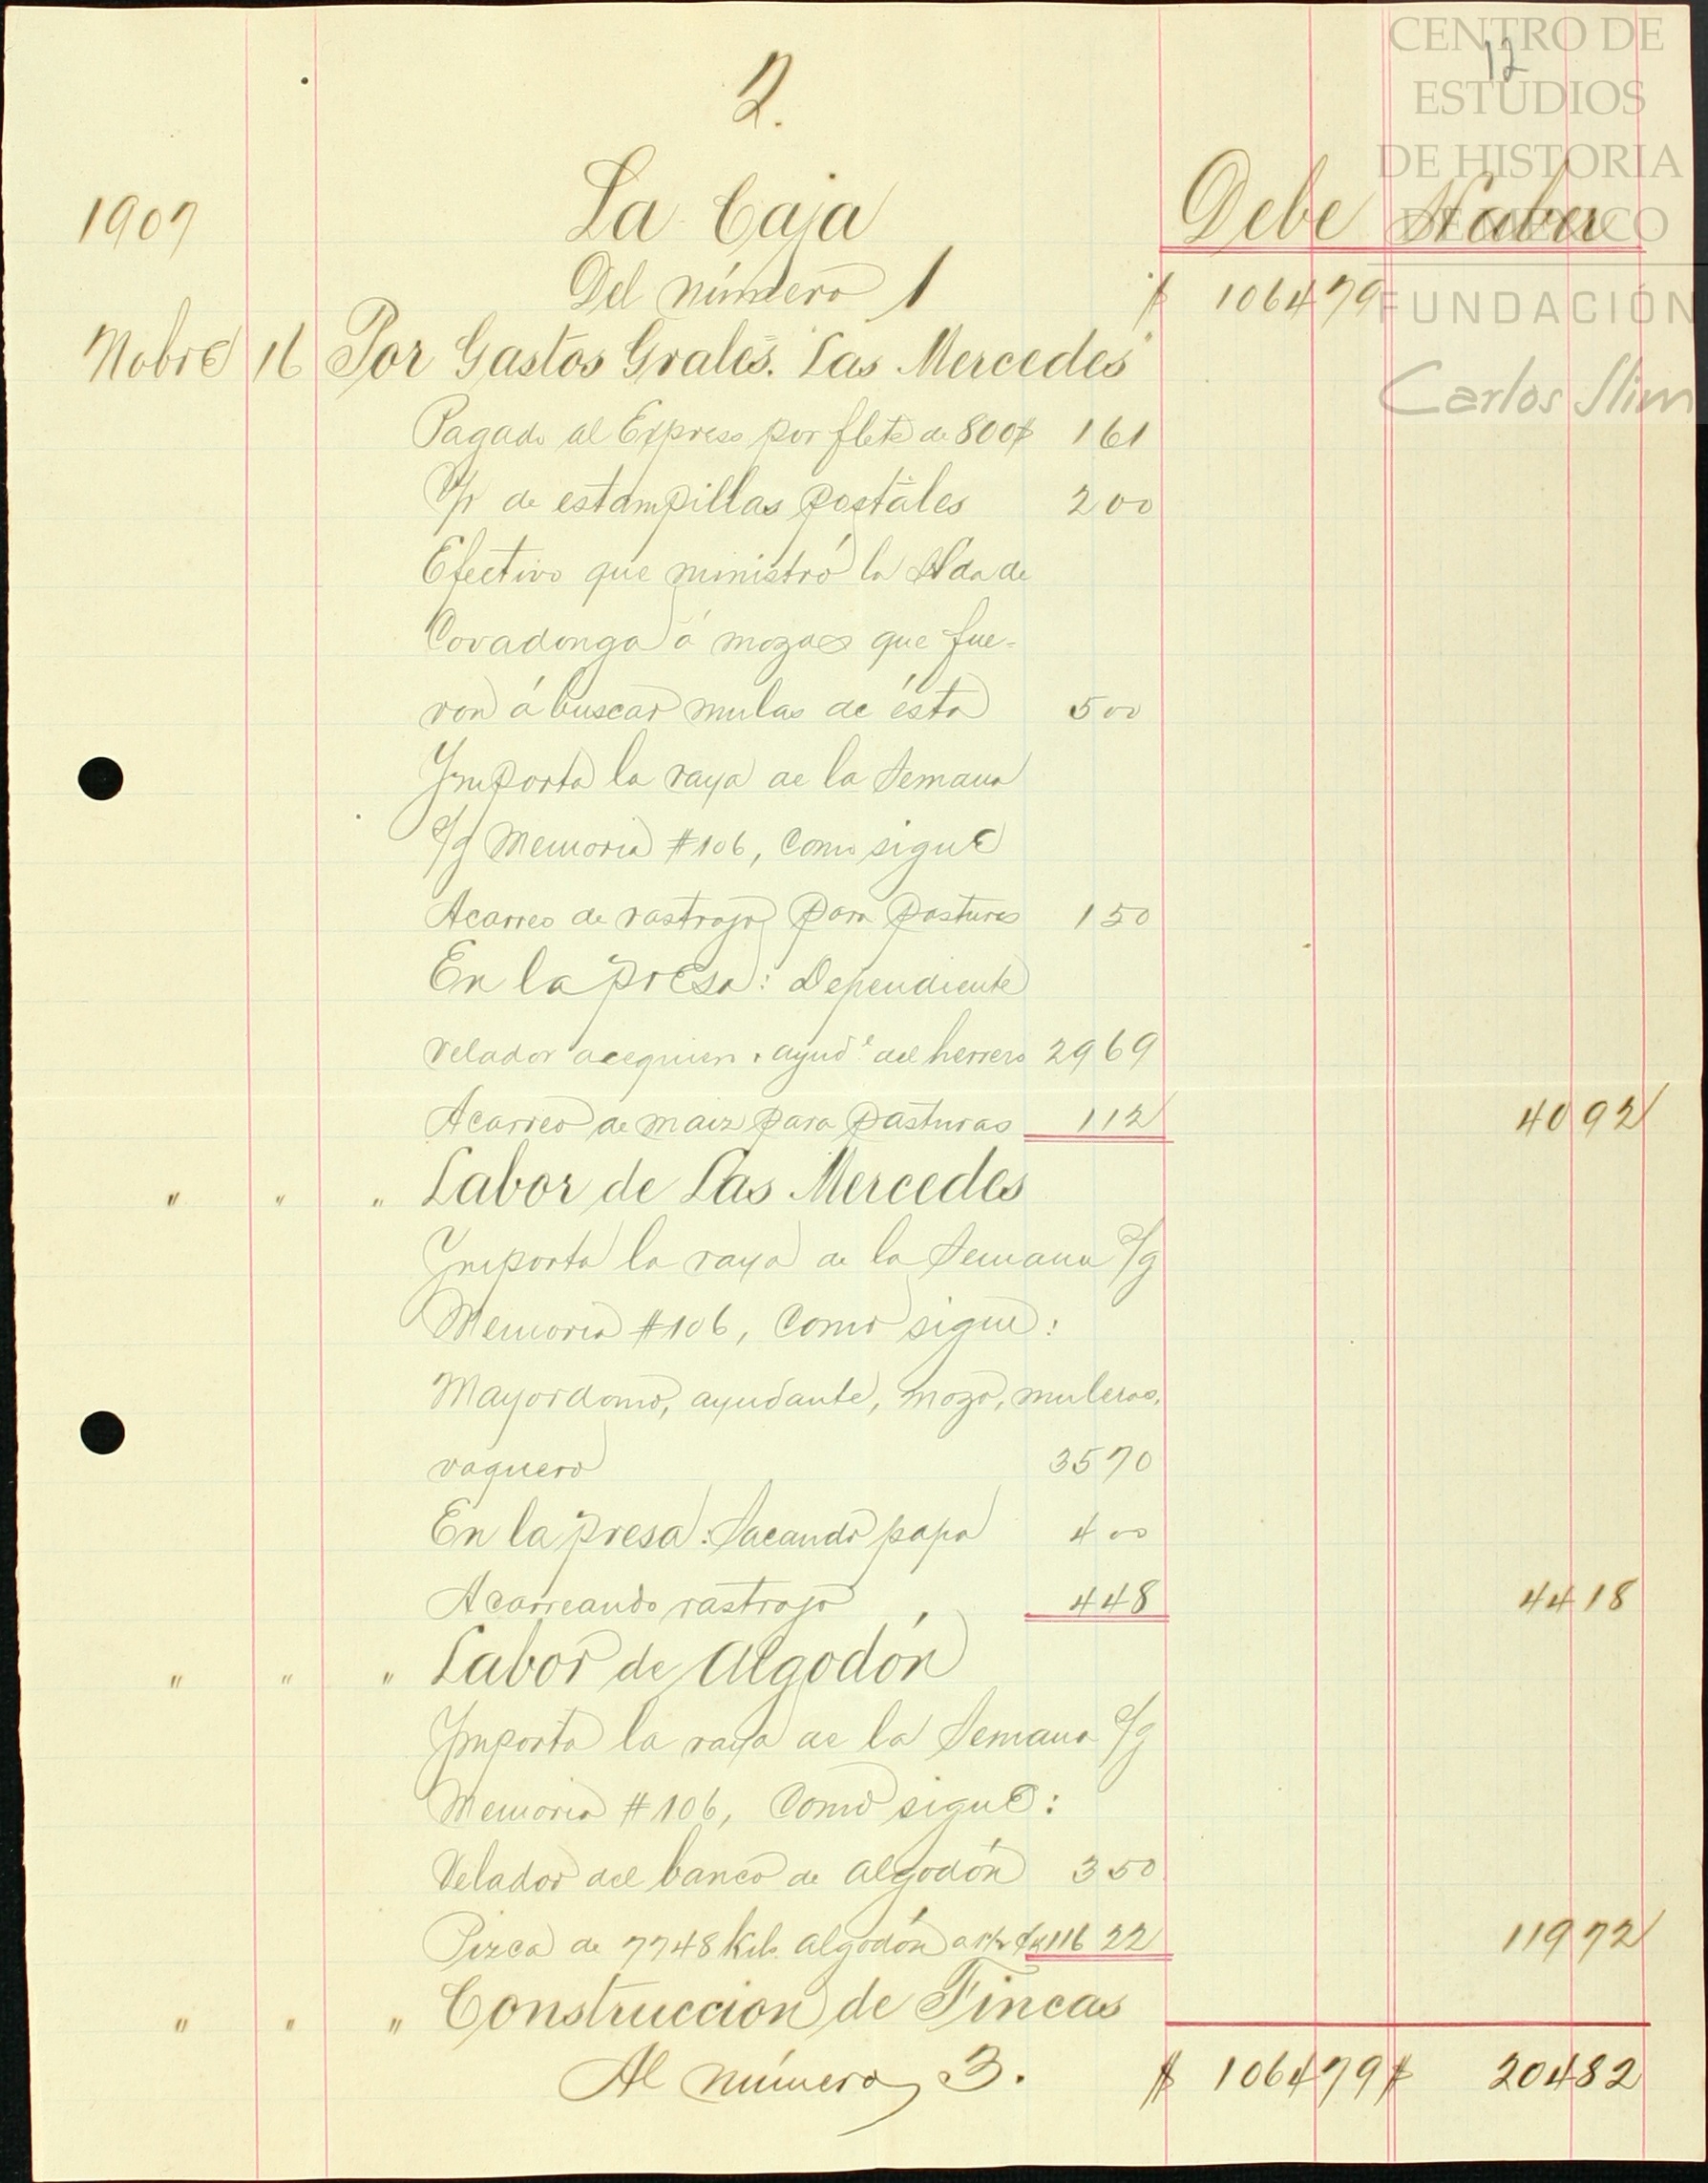 12
CENTRO DE
ESTUDIOS
DE HISTORIA
DE MÉXICO
FUNDACIÓN
Carlos Slim
2.
1907 La Caja Debe Haber
Del número 1 $ 1064 79
Nobre 16 Por Gastos Grales. "Las Mercedes"
Pagado al Express por flete de 800$ 1 61
V/r de estampillas postales 2 00
Efectivo que ministró la Hda de
Covadonga á mozos que fue-
ron á buscar mulas de ésta 5 00
Ymporta la raya de la Semana
s/g Memoria #106, como sigue
Acarreo de rastrojo para pasturas 1 50
En la presa: Dependiente
velador acequiero ayude. del herrero 29 69
Acarreo de maiz para pasturas 1 12 40 92
" " " Labor de Las Mercedes
Ymporta la raya de la Semana s/g
Memoria #106, como sigue:
Mayordomo, ayudante, mozo, muleros,
vaquero 35 70
En la presa: Sacando papa 4 00
Acarreando rastrojo 4 48 44 18
" " " Labor de Algodón
Ymporta la raya de la Semana s/g
Memoria #106, como sigue:
Velador del banco de algodón 3 50
Pizca de 7748 Kils. algodón a 116 22 119 72
" " " Construccion de Fincas
Al número 3. $ 1064 79 $ 204 82